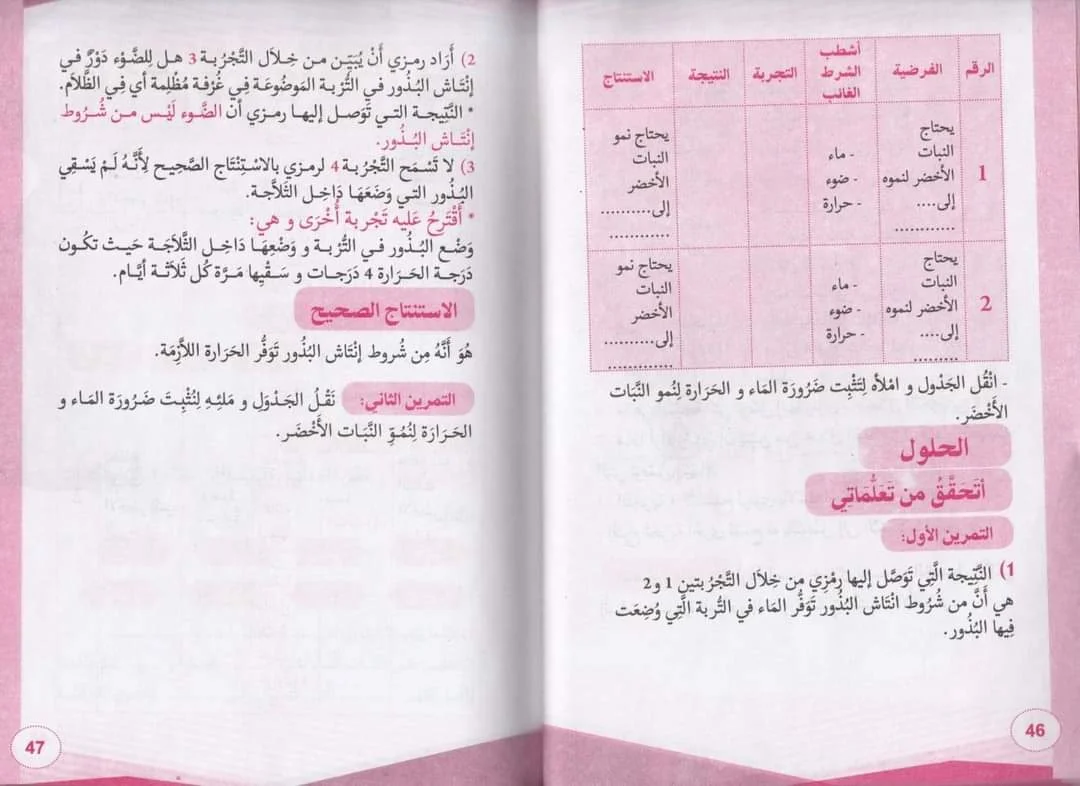 الرقم
الفرضية
أشطب
الشرط
الغائب
التجربة
النتيجة
الاستنتاج
1
يحتاج
النبات
الأخضر لنموه
إلى....
............
- ماء
- ضوء
- حرارة
يحتاج نمو
النبات
الأخضر
إلى..........
............
2
يحتاج
النبات
الأخضر لنموه
إلى....
.........
- ماء
- ضوء
- حرارة
يحتاج نمو
النبات
الأخضر
إلى..........
.............
- انْقُل الجَدْوَل و امْلأه لِتَثْبِت ضَرُورَة المَاء و الحَرَارة لِنُمو النَّبَات
الأَخْضَر.
الحلول
أتَحَقَّقُ من تَعَلُّمَاتِي
التمرين الأول:
1) النَّتِيجة الَّتِي تَوَصَّل إليها رمْزِي مِن خِلَال التَّجْرُبتينِ 1 و 2
هي أنَّ من شُرُوط انْتَاش البُذُور تَوَفُّر المَاء في التُّربة الَّتِي وُضِعَت
فِيها البُذُور.
46
2) أَرَاد رمـزي أَنْ يُبَيِّـن مـن خِـلَال التَّجْرُبـة 3 هـل لِلضَّوْء دَوْرٌ في
إنْتَاش البُذُور في التُّرْبة المَوْضُوعَة فِي غُرْفة مُظْلِمة أي فِي الظَّلاَم.
* النَّتِيجـة التـي تَوَصل إليهـا رمـزي أن الضَّوء لَيْس مـن شُـرُوط
إنْتَـاش البُـذُور.
3) لا تَسْمَح التَّجْرُبَة 4 لرمـزي بالاسْتِنْتَاج الصَّحِيح لِأَنَّـهُ لَـمْ يَسْقِي
البُذُور التـي وَضَعَهَا دَاخِـل الثَّلاَجـة.
* أَقْتَرِحُ عَلَيه تَجْربة أُخْرَى و هـي:
وَضْع البُـذُور فـي التُّرْبَـة و وَضْعِهَا دَاخِـل الثَّلاَجَة حَيـث تكُـون
دَرَجة الحَـرَارة 4 دَرَجات و سَقْيِها مَـرّة كُل ثَلاَثَـة أيَّـام.
الاستنتاج الصحيح
هُوَ أَنَّهُ مِن شُروط إنْتَاش البُذُور تَوَفُّر الحَرَارة اللاَّزِمَة.
التمرين الثاني: نَقْـلُ الجَـدْوَلِ و مَلئِـهِ لِنُثْبِـتَ ضَـرُورَة المَـاء و
الحَـرَارَة لِنُمُـوِّ النَّبَـات الأَخْضَـر.
47